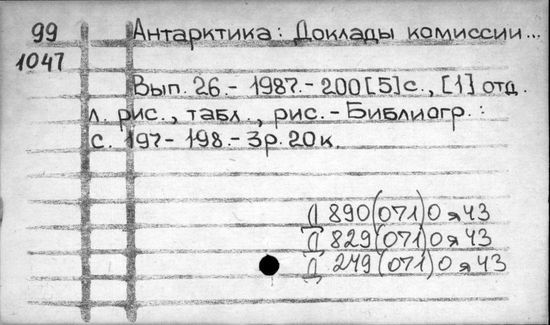 99 Антарктика: Доклады комиссии...
1047
Вып. 26.- 1987.- 200[5]с., [1] отд.
л. рис., табл., рис.- Библиогр.:
с. 197-198.- 3р. 20к.
Д 890(071)0 я 43
Д 829(071)0 я 43
Д 249(071)0 я 43